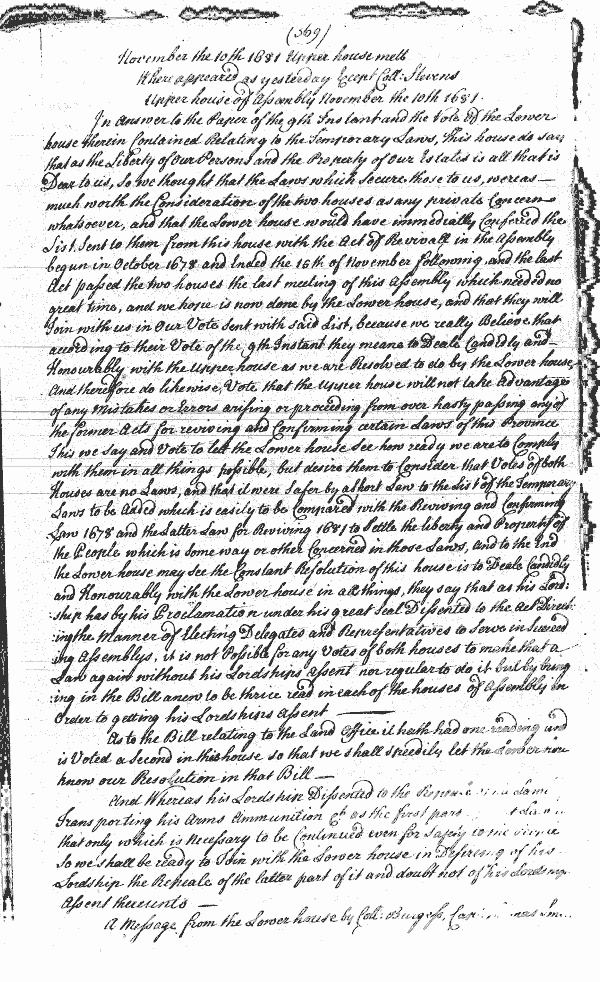 (369)
November the 10th 1681 Upper house mett
Where appeared as yesterday Except Coll: Stevens
Upper house of Assembly November the 10th 1681.
In Answer to the Paper of the 9th Instant and the Vote of the Lower
house therein Contained Relating to the Temporary Laws, This house do say
that as the Liberty of Our Persons and the Property of Our Estates is all that is
Dear to us, So we thought that the Laws which Secure those to us, were as
much worth the Consideration of the two houses as any private Concern
whatsoever, and that the Lower house would have immediatly Conferred the
List, Sent to them from this house with the Act of Revivall in the Assembly
begun in October 1678 and Ended the 15th of November following, and the last
Act passed the two houses the last meeting of this Assembly which needed no
great time, and we hope is now done by the Lower house, and that they will
Join with us in Our Vote Sent with said List, because we really Believe that
according to their Vote of the 9th Instant they mean to Deale Candidly and
Honourably with the Upper house as we are Resolved to do by the Lower house
And therefore do likewise, Vote that the Upper house will not take Advantage
of any Mistakes or Errors arising or proceeding from over hasty passing any of
the former Acts for reviving and Confirming certain Laws of this Province
This we Say and Vote to lett the Lower house See how ready we are to Comply
with them in all things possible, but desire them to Consider that Votes of both
Houses are no Laws, and that it were Safer by a short Law to the List of the Temporary
Laws to be Added which is easily to be Compared with the Reviving and Confirming
Law 1678 and the Latter Law for Reviving 1681 to Settle the liberty and Property of
the People which is Some way or other Concerned in those Laws, and to the End
the Lower house may See the Constant Resolution of this house is to Deale Candidly
and Honourably with the Lower house in all things, they Say that as his Lord:
ship has by his Proclamation under his great Seal Dissented to the Act Direct
ing the Manner of Electing Delegates and Representatives to Serve in Succeed
ing Assemblys, it is not Possible for any Votes of both houses to make that a
Law again without his Lordships Assent nor regular to do it but by bring
ing in the Bill anew to be thrice read in each of the houses of Assembly in
Order to getting his Lordships Assent
As to the Bill relating to the Land Office it hath had one reading and
is Voted a Second in this house so that we shall Speedily let the Lower hou
know our Resolution in that Bill
And Whereas his Lordship Dissented to the
Transporting his Arms Ammunition &c as the first part
that only which is Necessary to be Continued even for Safety to the
So we shall be ready to Join with the Lower house in Desiring of his
Lordship the Repeale of the latter part of it and doubt not of his Lordship
Assent thereunto
A Message from the Lower house by Coll: Burgess,